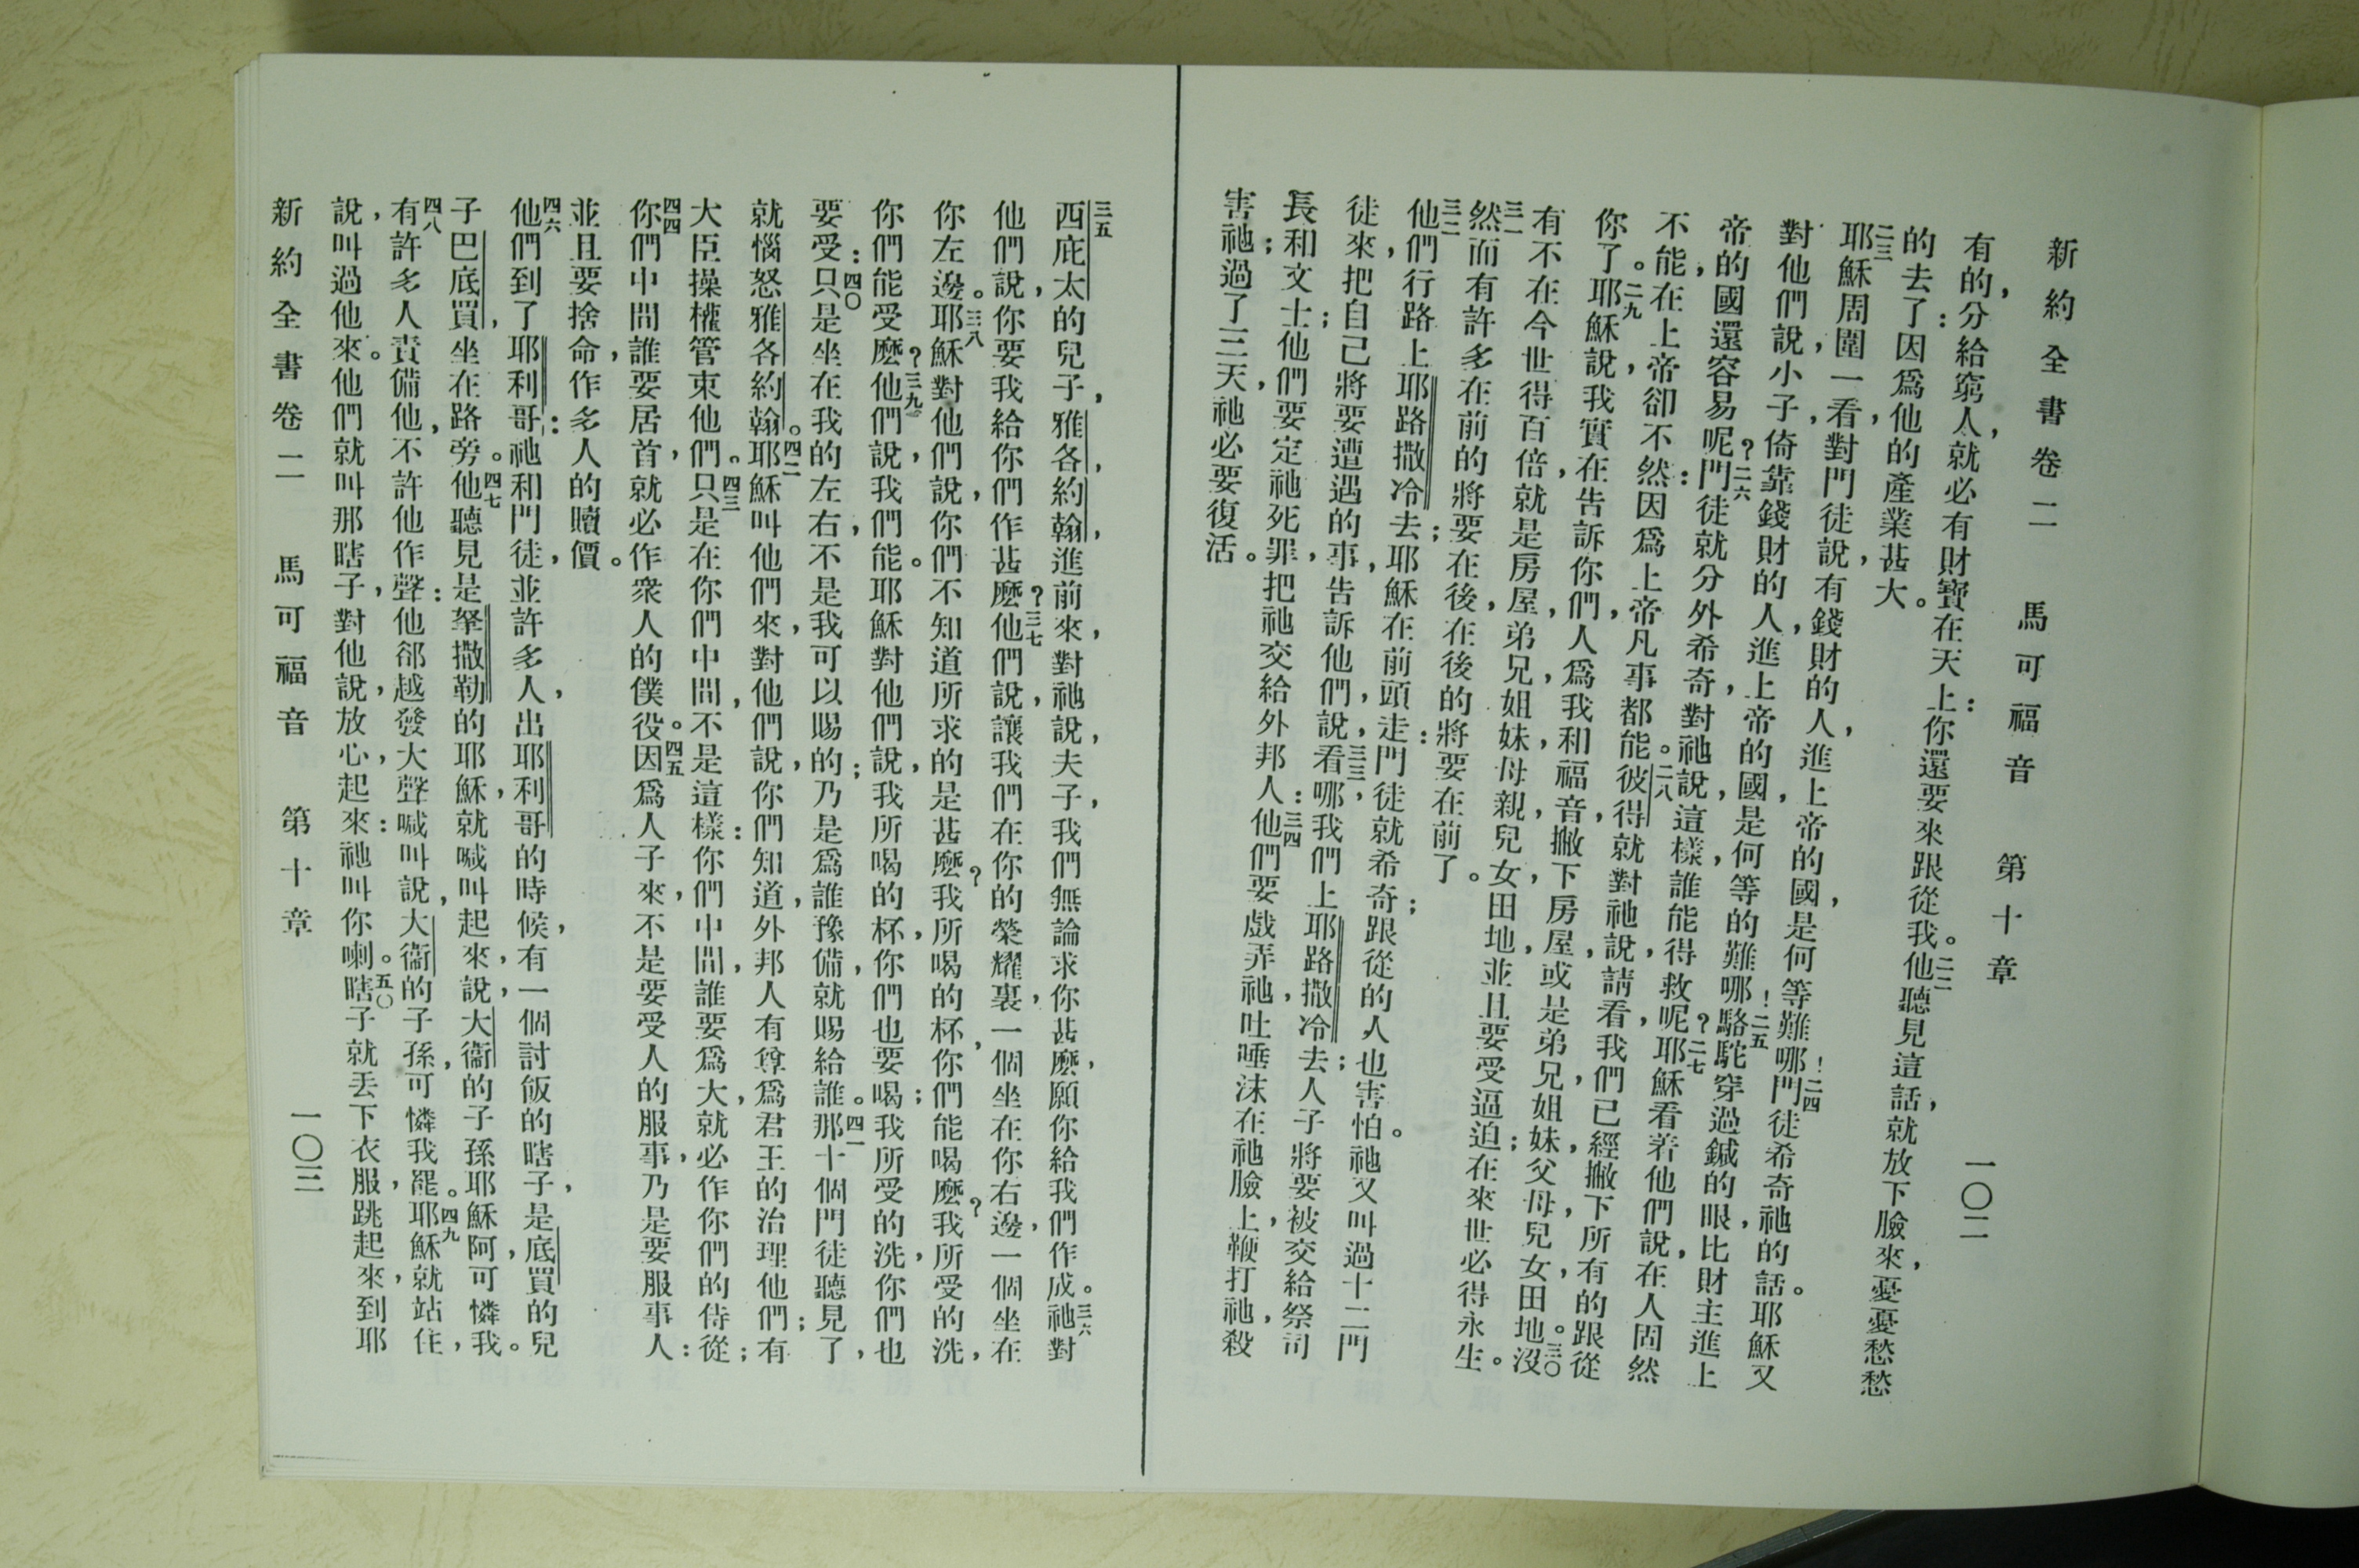 新約全書卷二 馬可福音 第十章 一〇二
有的，分給窮人，就必有財寶在天上：你還要來跟從我。二二他聽見這話，就放下臉來，憂憂愁愁
的去了：因爲他的產業甚大。
二三耶穌周圍一看，對門徒說，有錢財的人，進上帝的國，是何等難哪！二四門徒希奇祂的話。耶穌又
對他們說，小子，倚靠錢財的人，進上帝的國，是何等的難哪！二五駱駝穿過鍼的眼，比財主進上
帝的國還容易呢？二六門徒就分外希奇，對祂說，這樣，誰能得救呢？二七耶穌看着他們說，在人固然
不能，在上帝卻不然：因爲上帝凡事都能。二八彼得就對祂說，請看，我們已經撇下所有的，跟從
你了。二九耶穌說，我實在告訴你們，人爲我和福音，撇下房屋，或是弟兄，姐妹，父母，兒女，田地。三〇沒
有不在今世得百倍，就是房屋，弟兄，姐妹，母親，兒女，田地，並且要受逼迫；在來世必得永生。
三一然而有許多在前的將要在後，在後的將要在前了。
三二他們行路上耶路撒冷去；耶穌在前頭走：門徒就希奇；跟從的人也害怕。祂又叫過十二門
徒來，把自己將要遭遇的事，告訴他們，說，三三看哪，我們上耶路撒冷去；人子將要被交給祭司
長和文士；他們要定祂死罪，把祂交給外邦人：三四他們要戲弄祂，吐唾沫在祂臉上，鞭打祂，殺
害祂；過了三天，祂必要復活。
三五西庇太的兒子，雅各，約翰，進前來，對祂說，夫子，我們無論求你甚麼，願你給我們作成。三六祂對
他們說，你要我給你們作甚麼？三七他們說，讓我們在你的榮耀裏，一個坐在你右邊，一個坐在
你左邊。三八耶穌對他們說，你們不知道所求的是甚麼？我所喝的杯，你們能喝麼？我所受的洗，
你們能受麼？三九他們說，我們能。耶穌對他們說，我所喝的杯，你們也要喝；我所受的洗，你們也
要受：四〇只是坐在我的左右，不是我可以賜的；乃是爲誰豫備，就賜給誰。四一那十個門徒聽見了，
就惱怒雅各約翰。四二耶穌叫他們來，對他們說，你們知道，外邦人有尊爲君王的治理他們；有
大臣操權管束他們。四三只是在你們中間，不是這樣：你們中間，誰要爲大，就必作你們的侍從；
四四你們中間，誰要居首，就必作衆人的僕役。四五因爲人子來，不是要受人的服事，乃是要服事人：
並且要捨命，作多人的贖價。
四六他們到了耶利哥：祂和門徒，並許多人，出耶利哥的時候，有一個討飯的瞎子，是底買的兒
子，巴底買，坐在路旁。四七他聽見是拏撒勒的耶穌，就喊叫起來，說，大衞的子孫耶穌阿，可憐我。
四八有許多人責備他，不許他作聲：他郤越發大聲喊叫說，大衞的子孫，可憐我罷。四九耶穌就站住，
說，叫過他來。他們就叫那瞎子，對他說，放心，起來：祂叫你喇。五〇瞎子就丟下衣服，跳起來，到耶
新約全書卷二 馬可福音 第十章 一〇三